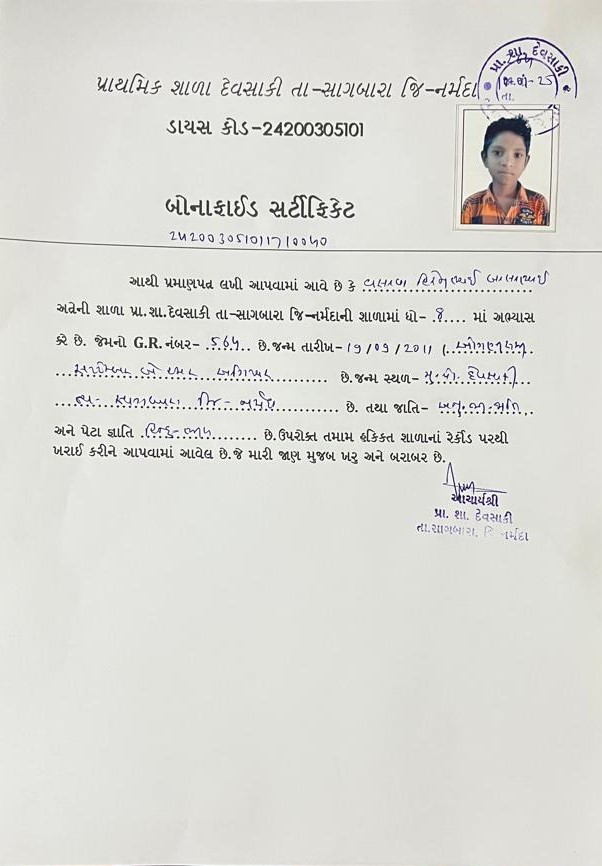 પ્રા. શા. દેવસાકી
તા.
પ્રાથમિક શાળા દેવસાકી તા-સાગબારા જિ-નર્મદા
ડાયસ કોડ-24200305101
બોનાફાઈડ સર્ટીફિકેટ
242003051011710040
આથી પ્રમાણપત્ર લખી આપવામાં આવે છે કે વસાવા
અત્રેની શાળા પ્રા.શા.દેવસાકી તા-સાગબારા જિ-નર્મદાની શાળામાં ધો- 8 માં અભ્યાસ
કરે છે. જેમનો G.R. નંબર- 564 છે.જન્મ તારીખ- 19/09/2011 (ઓગણીસ
સપ્ટેમ્બર બે હજાર અગિયાર છે.જન્મ સ્થળ- મુ.પો. દેવસાકી
તા- સાગબારા જિ- નર્મદા છે. તથા જાતિ- અનુ.જ.જાતિ
અને પેટા જ્ઞાતિ હિન્દુ-ભીલ છે.ઉપરોક્ત તમામ હકિકત શાળાનાં રેકોર્ડ પરથી
ખરાઈ કરીને આપવામાં આવેલ છે.જે મારી જાણ મુજબ ખરુ અને બરાબર છે.
આચાર્યશ્રી
પ્રા. શા. દેવસાકી
તા.સાગબારા, જિ નર્મદા